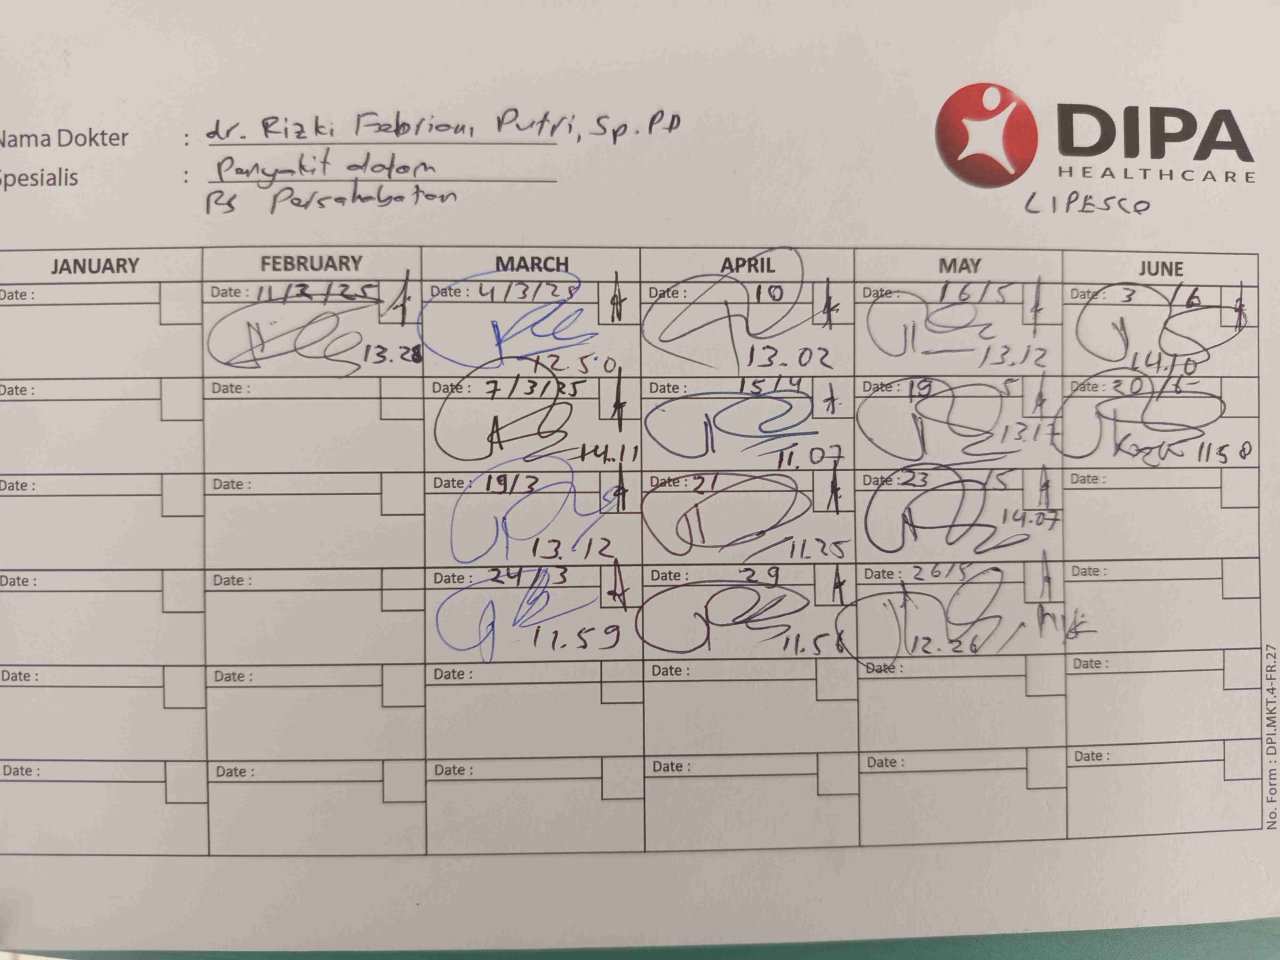 Nama Dokter : dr. Rizki Febriani Putri, Sp.PD
Spesialis : Penyakit dalam
RS Persahabatan
DIPA
HEALTHCARE
LIPESCO
JANUARY FEBRUARY MARCH APRIL MAY JUNE
Date : Date : 11/2/25 Date : 4/3/25 Date : 10 Date : 16/5 Date : 3/6
13.28 12.50 13.02 13.12 14.10
Date : Date : Date : 7/3/25 Date : 15/4 Date : 19 5 Date : 20/6
14.11 11.07 13.17 1158
Date : Date : Date : 19/3 Date : 21 Date : 23/5 Date :
13.12 11.25 14.07
Date : Date : Date : 24/3 Date : 29 Date : 26/5 Date :
11.59 12.26
Date : Date : Date : Date : Date : Date :
Date : Date : Date : Date : Date : Date :
No. Form : DPI.MKT.4-FR.27